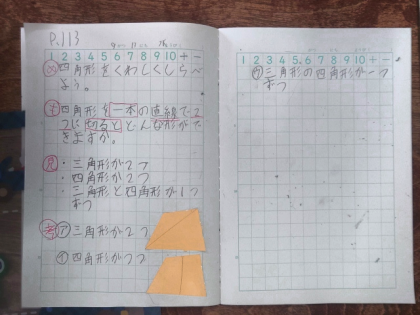 P.113
1 2 3 4 5 6 7 8 9 10 + -
め 四角形をくわしくしらべ
よう。
も 四角形を一本の直線で2
つに切るとどんな形がで
きますか。
見 ・三角形が2つ
・四角形が2つ
・三角形と四角形が1つ
ずつ
考 ㋐ 三角形が2つ
㋑ 四角形が2つ
1 2 3 4 5 6 7 8 9 10 + -
三角形の四角形が一つ
ずつ